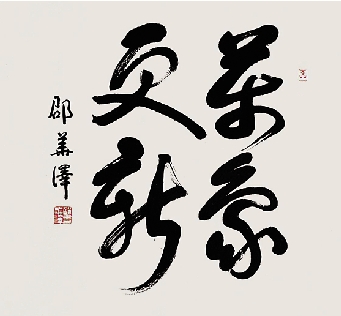 萬象
更新
邵華澤